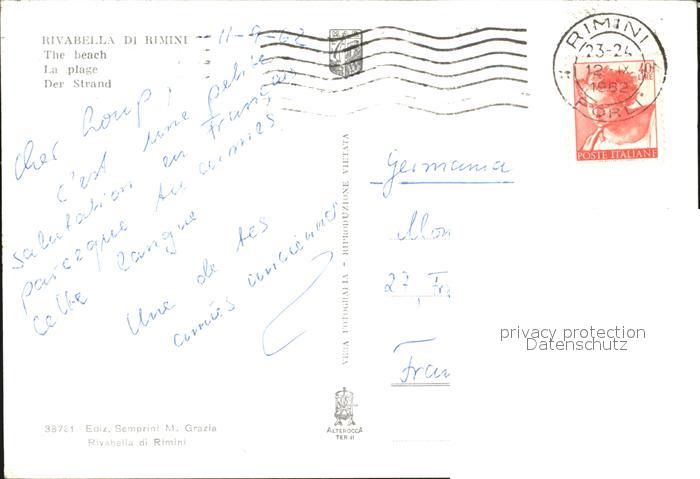 RIVABELLA DI RIMINI
The beach
La plage
Der Strand
11-9-62
Cher Loup,
C'est une petite
salutation en français
parceque tu connais
cette langue
Une de tes
amies
VERA FOTOGRAFIA - RIPRODUZIONE VIETATA
38781 Ediz. Semprini M. Grazia
Rivabella di Rimini
ALTEROCCA
TERNI
RIMINI
23-24
12 IX
1962
FORLI
POSTE ITALIANE
Germania
27, Fr
privacy protection
Datenschutz